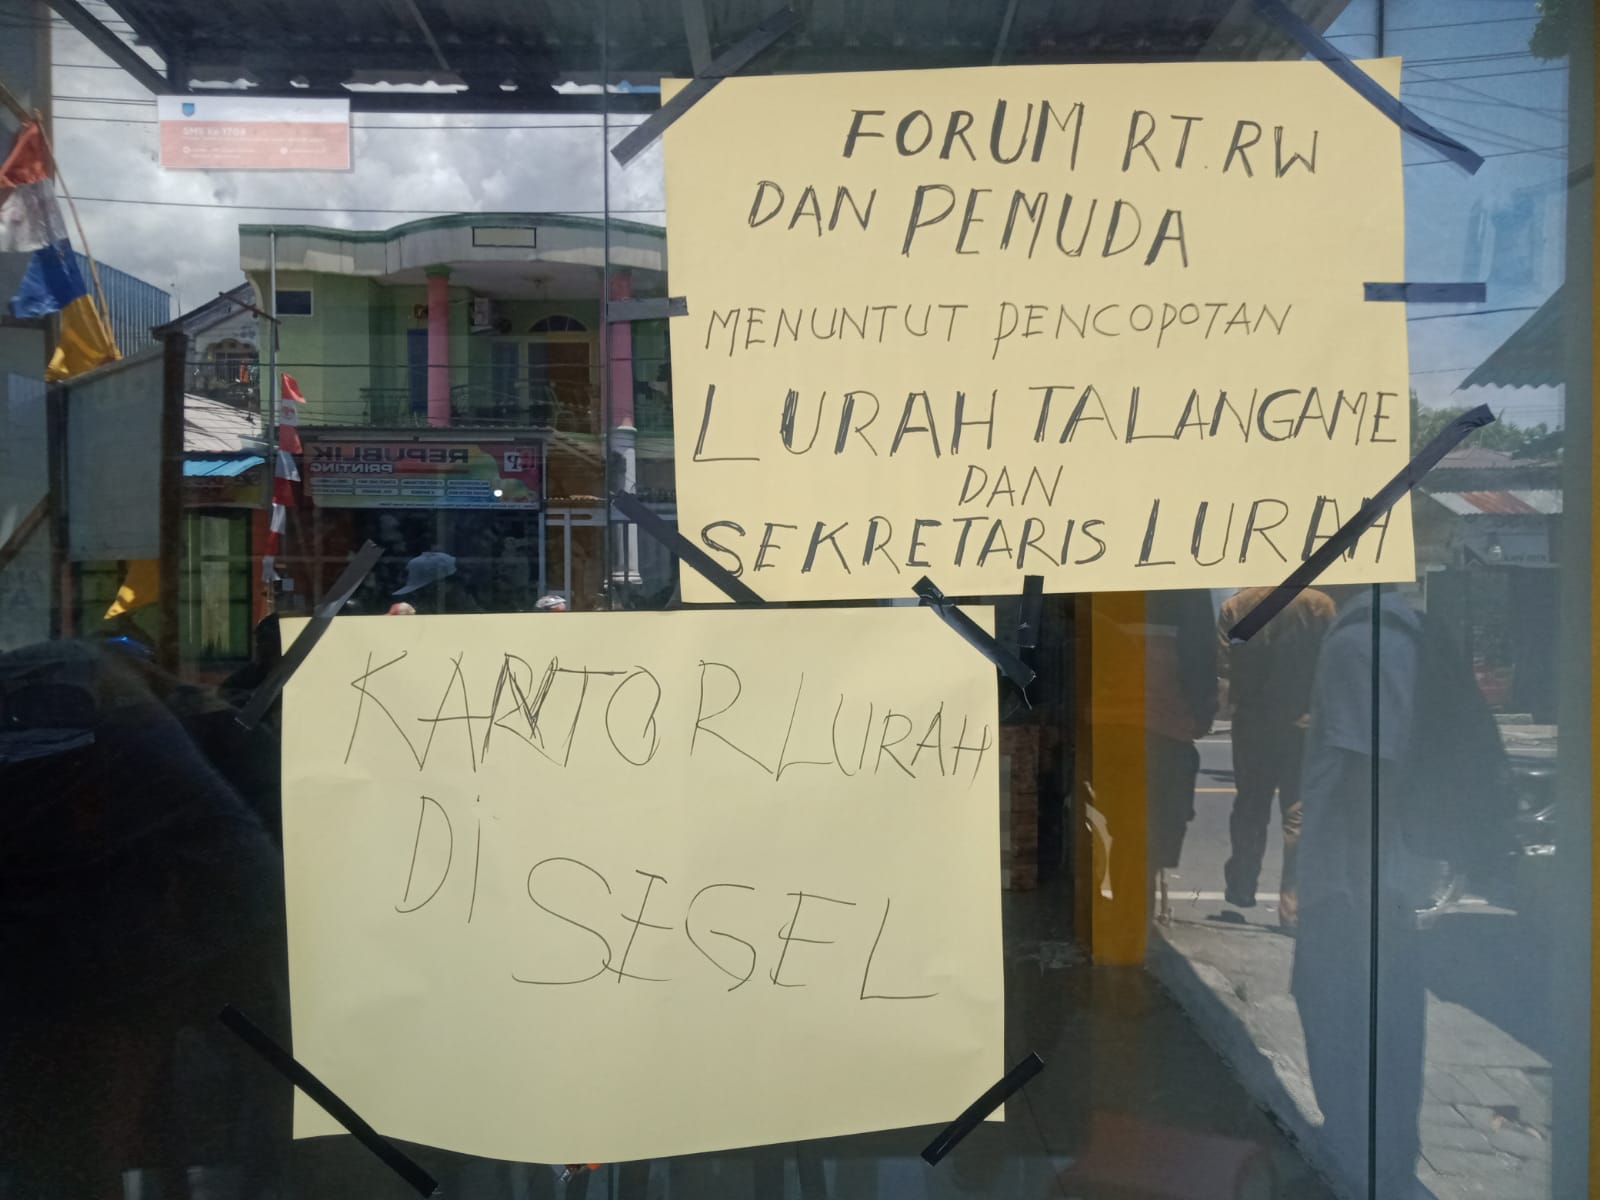 FORUM RT.RW
DAN PEMUDA
MENUNTUT PENCOPOTAN
LURAH TALANGAME
DAN
SEKRETARIS LURAH
KANTOR LURAH
Di
SEGEL
SMS ke 1708
REPUBLIK
PRINTING